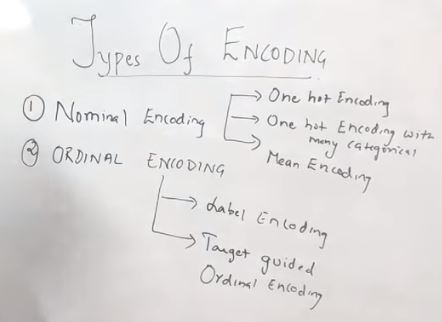 Types Of ENCODING
① Nominal Encoding
One hot Encoding
One hot Encoding with
many categorical
Mean Encoding
② ORDINAL ENCODING
Label Encoding
Target guided
Ordinal Encoding